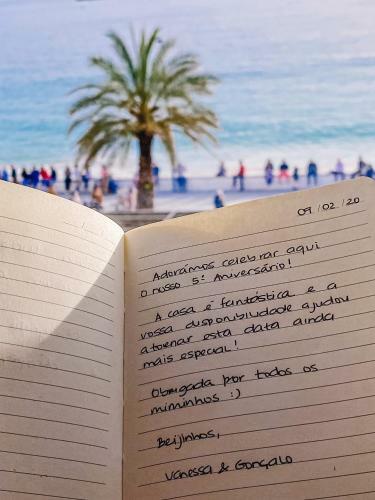 09/02/20
Adorámos celebrar aqui
o nosso 5º Aniversário!
A casa é fantástica e a
vossa disponibilidade ajudou
a tornar esta data ainda
mais especial!
Obrigada por todos os
miminhos :)
Beijinhos,
Vanessa & Gonçalo